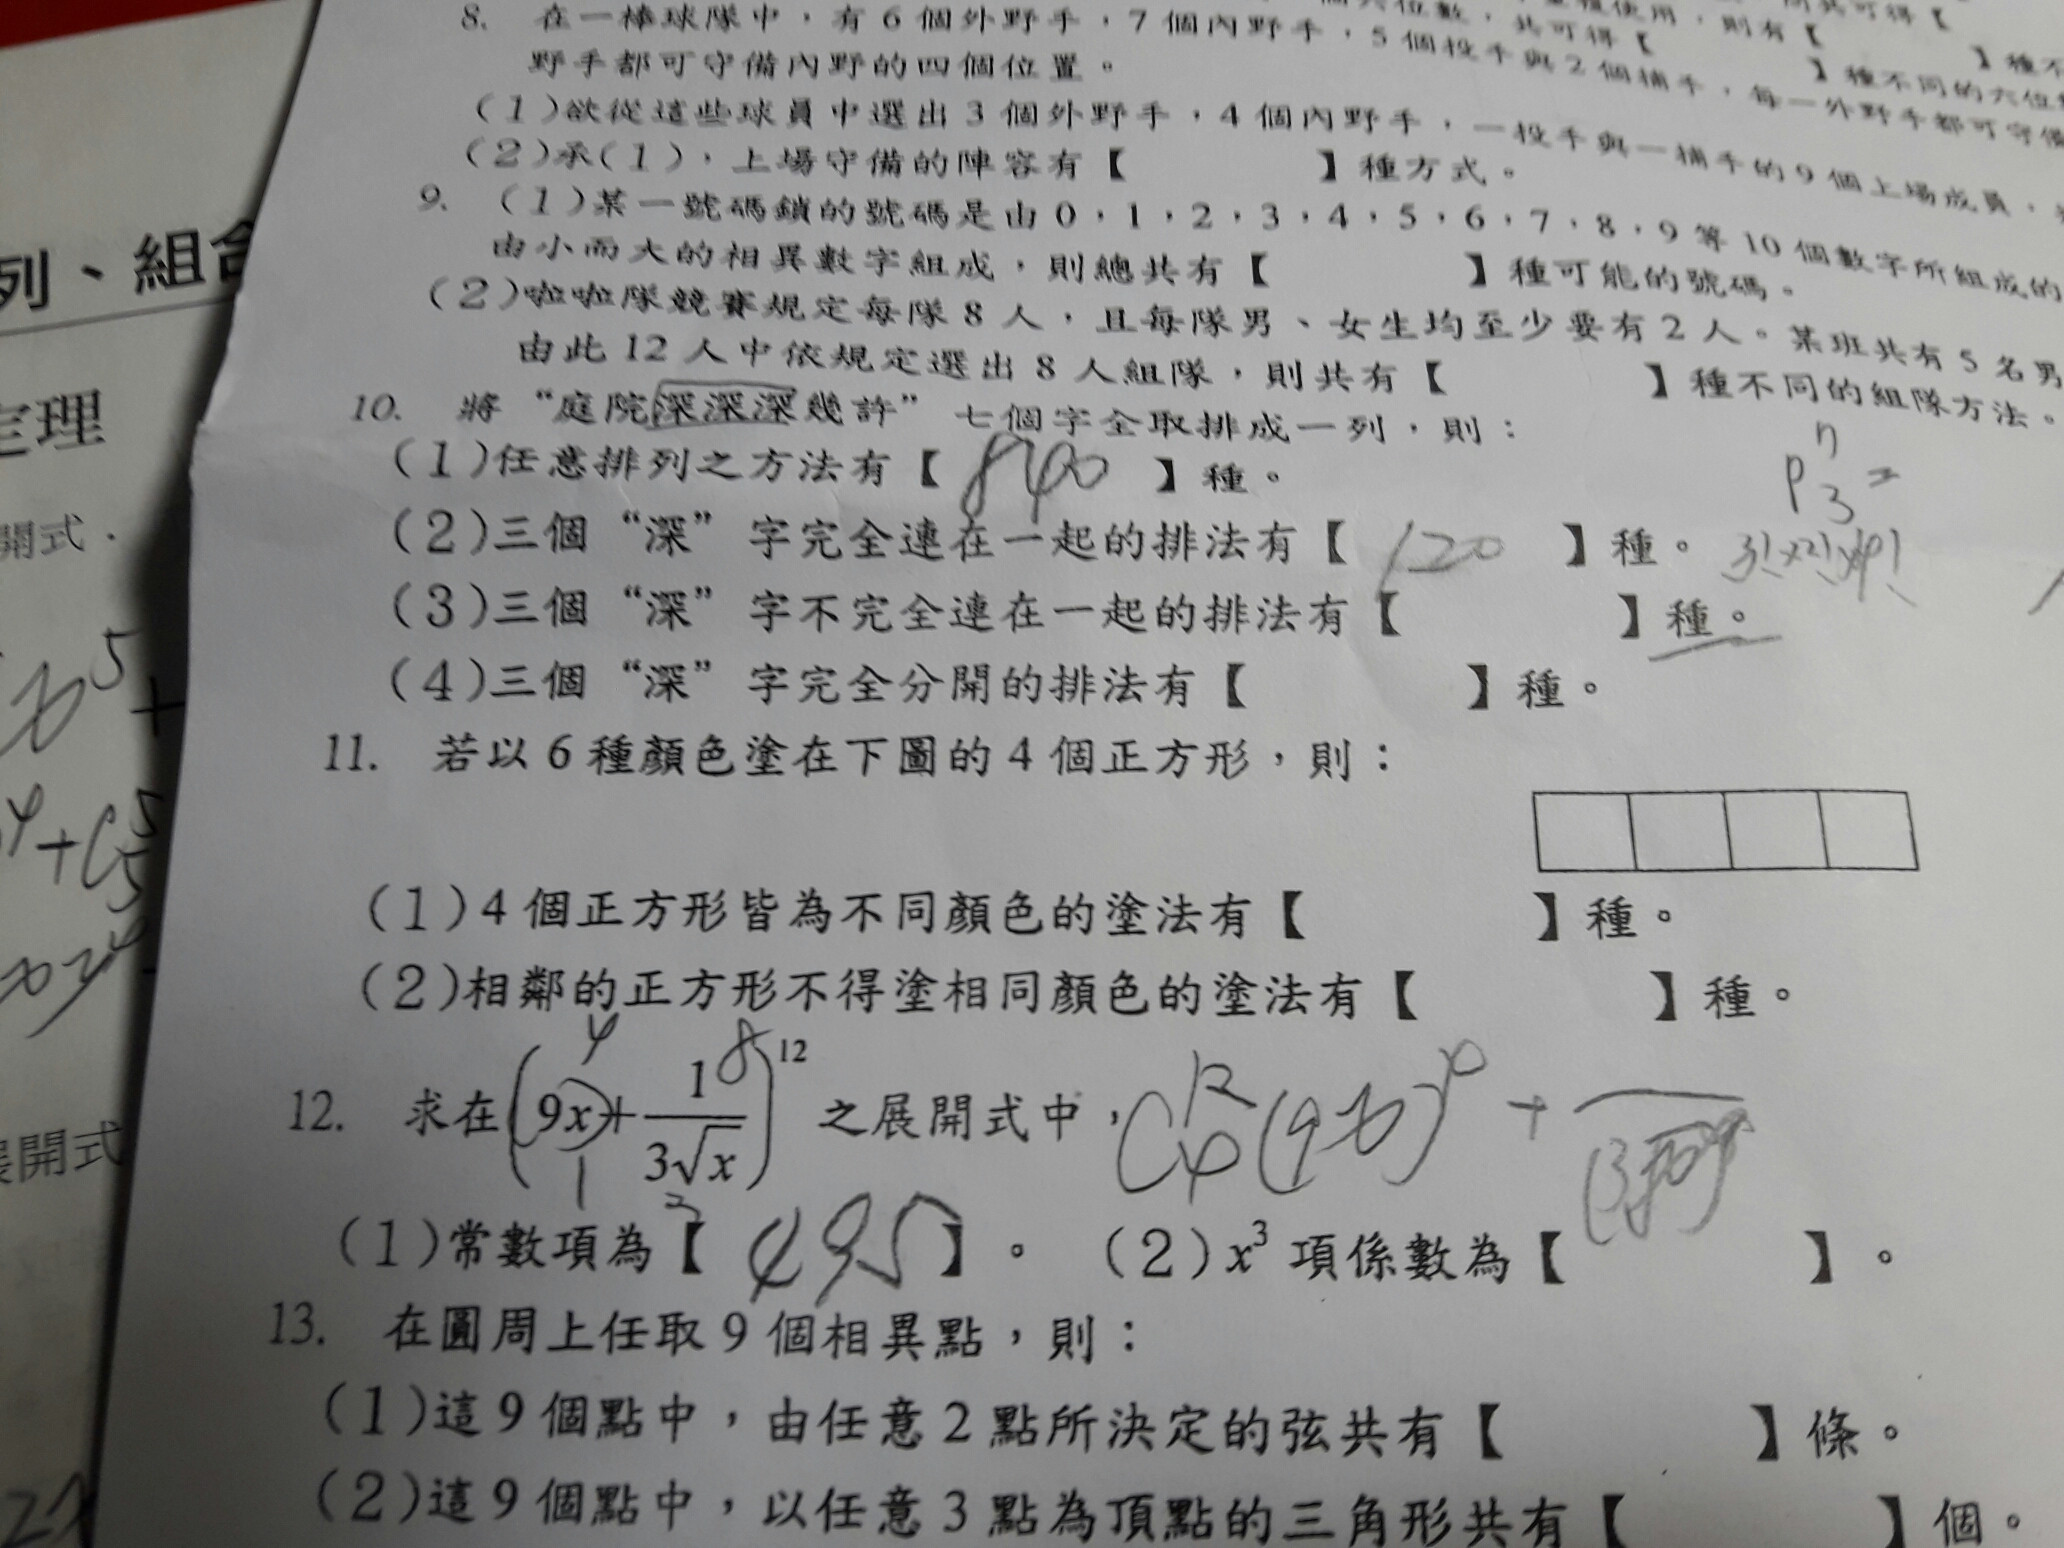 種不同的六位
8. 在一棒球隊中，有6個外野手，7個內野手，5個投手與2個捕手，每一外野手都可守備
野手都可守備內野的四個位置。
(1)欲從這些球員中選出3個外野手，4個內野手，一投手與一捕手的9個上場成員，
(2)承(1)，上場守備的陣容有【 】種方式。
9. (1)某一號碼鎖的號碼是由0，1，2，3，4，5，6，7，8，9等10個數字所組成的
由小而大的相異數字組成，則總共有【 】種可能的號碼。
(2)啦啦隊競賽規定每隊8人，且每隊男、女生均至少要有2人。某班共有5名男
由此12人中依規定選出8人組隊，則共有【 】種不同的組隊方法。
10. 將“庭院深深深幾許”七個字全取排成一列，則：
P 7 3 =
(1)任意排列之方法有【 840 】種。
(2)三個“深”字完全連在一起的排法有【 120 】種。 3!×2!×4!
(3)三個“深”字不完全連在一起的排法有【 】種。
(4)三個“深”字完全分開的排法有【 】種。
11. 若以6種顏色塗在下圖的4個正方形，則：
(1)4個正方形皆為不同顏色的塗法有【 】種。
(2)相鄰的正方形不得塗相同顏色的塗法有【 】種。
4 8
12. 求在(9x+1/3√x)^12之展開式中，C 12 4 (9x) +
1 2
(1)常數項為【 495 】。 (2) x³ 項係數為【 】。
13. 在圓周上任取9個相異點，則：
(1)這9個點中，由任意2點所決定的弦共有【 】條。
(2)這9個點中，以任意3點為頂點的三角形共有【 】個。
列、組合
定理
開式．
展開式